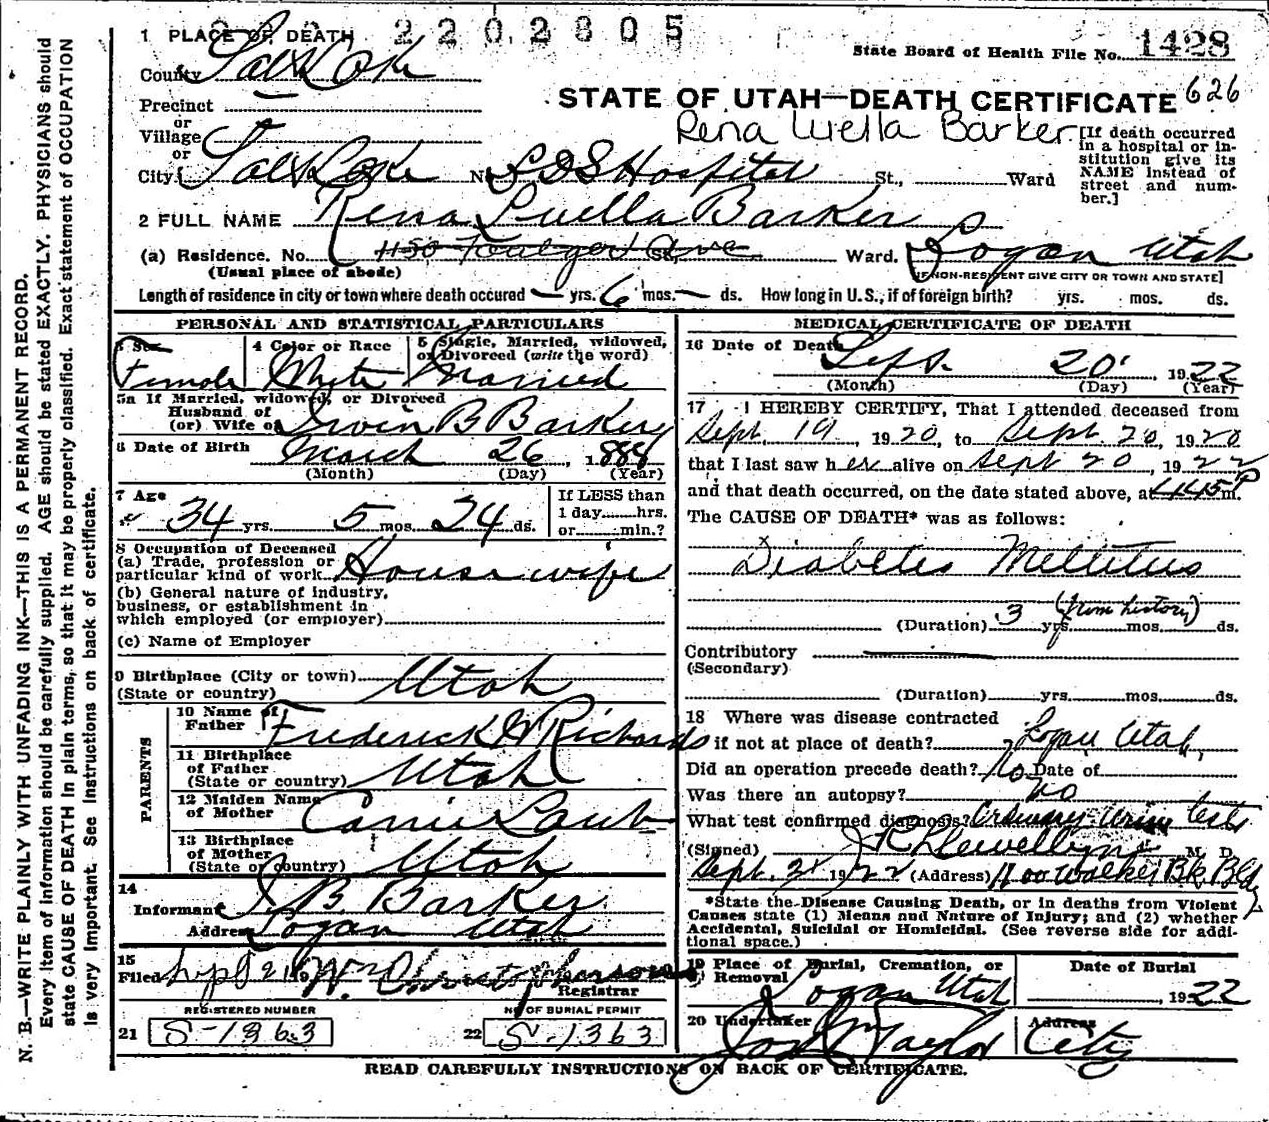 2202805
1 PLACE OF DEATH
State Board of Health File No. 1428
County Salt Lake
STATE OF UTAH—DEATH CERTIFICATE 626
Precinct
or
Village
or
Rena Luella Barker
[If death occurred in a hospital or institution give its NAME instead of street and number.]
City Salt Lake No LDS Hospital St., Ward
2 FULL NAME Rena Luella Barker
(a) Residence. No. 1150 Ave St., Ward. Logan Utah
(Usual place of abode) [IF NON-RESIDENT GIVE CITY OR TOWN AND STATE]
Length of residence in city or town where death occured — yrs. 6 mos. — ds. How long in U.S., if of foreign birth? yrs. mos. ds.
PERSONAL AND STATISTICAL PARTICULARS
3 Sex Female
4 Color or Race White
5 Single, Married, widowed, or Divorced (write the word) Married
5a If Married, widowed, or Divorced
Husband of
(or) Wife of Irvin B Barker
6 Date of Birth March 26, 1888
(Month) (Day) (Year)
7 Age 34 yrs. 5 mos. 24 ds.
If LESS than
1 day hrs.
or min.?
8 Occupation of Deceased
(a) Trade, profession or
particular kind of work Housewife
(b) General nature of industry,
business, or establishment in
which employed (or employer)
(c) Name of Employer
9 Birthplace (City or town) Utah
(State or country)
PARENTS
10 Name of
Father Frederick W Richards
11 Birthplace
of Father Utah
(State or country)
12 Maiden Name
of Mother Carrie Laub
13 Birthplace
of Mother Utah
(State or country)
14
Informant I. B. Barker
Address Logan Utah
15
Filed Sep 21 19 Wm Christopherson
Registrar
REGISTERED NUMBER
21 S-1363
No OF BURIAL PERMIT
22 S-1363
MEDICAL CERTIFICATE OF DEATH
16 Date of Death Sept. 20, 1922
(Month) (Day) (Year)
17 I HEREBY CERTIFY, That I attended deceased from
Sept. 19, 1920, to Sept. 20, 1920
that I last saw her alive on Sept 20, 1922
and that death occurred, on the date stated above, at 445 P m.
The CAUSE OF DEATH* was as follows:
Diabetes Mellitus
(from history)
(Duration) 3 yrs. mos. ds.
Contributory —
(Secondary)
(Duration) yrs. mos. ds.
18 Where was disease contracted
if not at place of death? Logan Utah,
Did an operation precede death? No Date of
Was there an autopsy? no
What test confirmed diagnosis? Ordinary Urine tests
(Signed) J R Llewellyn M. D.
Sept. 21 1922 (Address) 1100 Walker Bk Bldg
*State the Disease Causing Death, or in deaths from Violent
Causes state (1) Means and Nature of Injury; and (2) whether
Accidental, Suicidal or Homicidal. (See reverse side for addi-
tional space.)
19 Place of Burial, Cremation, or
Removal Logan Utah
Date of Burial
, 1922
20 Undertaker Jos Wm Taylor
Address City
READ CAREFULLY INSTRUCTIONS ON BACK OF CERTIFICATE.
N. B.—WRITE PLAINLY WITH UNFADING INK—THIS IS A PERMANENT RECORD.
Every item of Information should be carefully supplied. AGE should be stated EXACTLY. PHYSICIANS should
state CAUSE OF DEATH in plain terms, so that it may be properly classified. Exact statement of OCCUPATION
is very important. See Instructions on back of certificate.